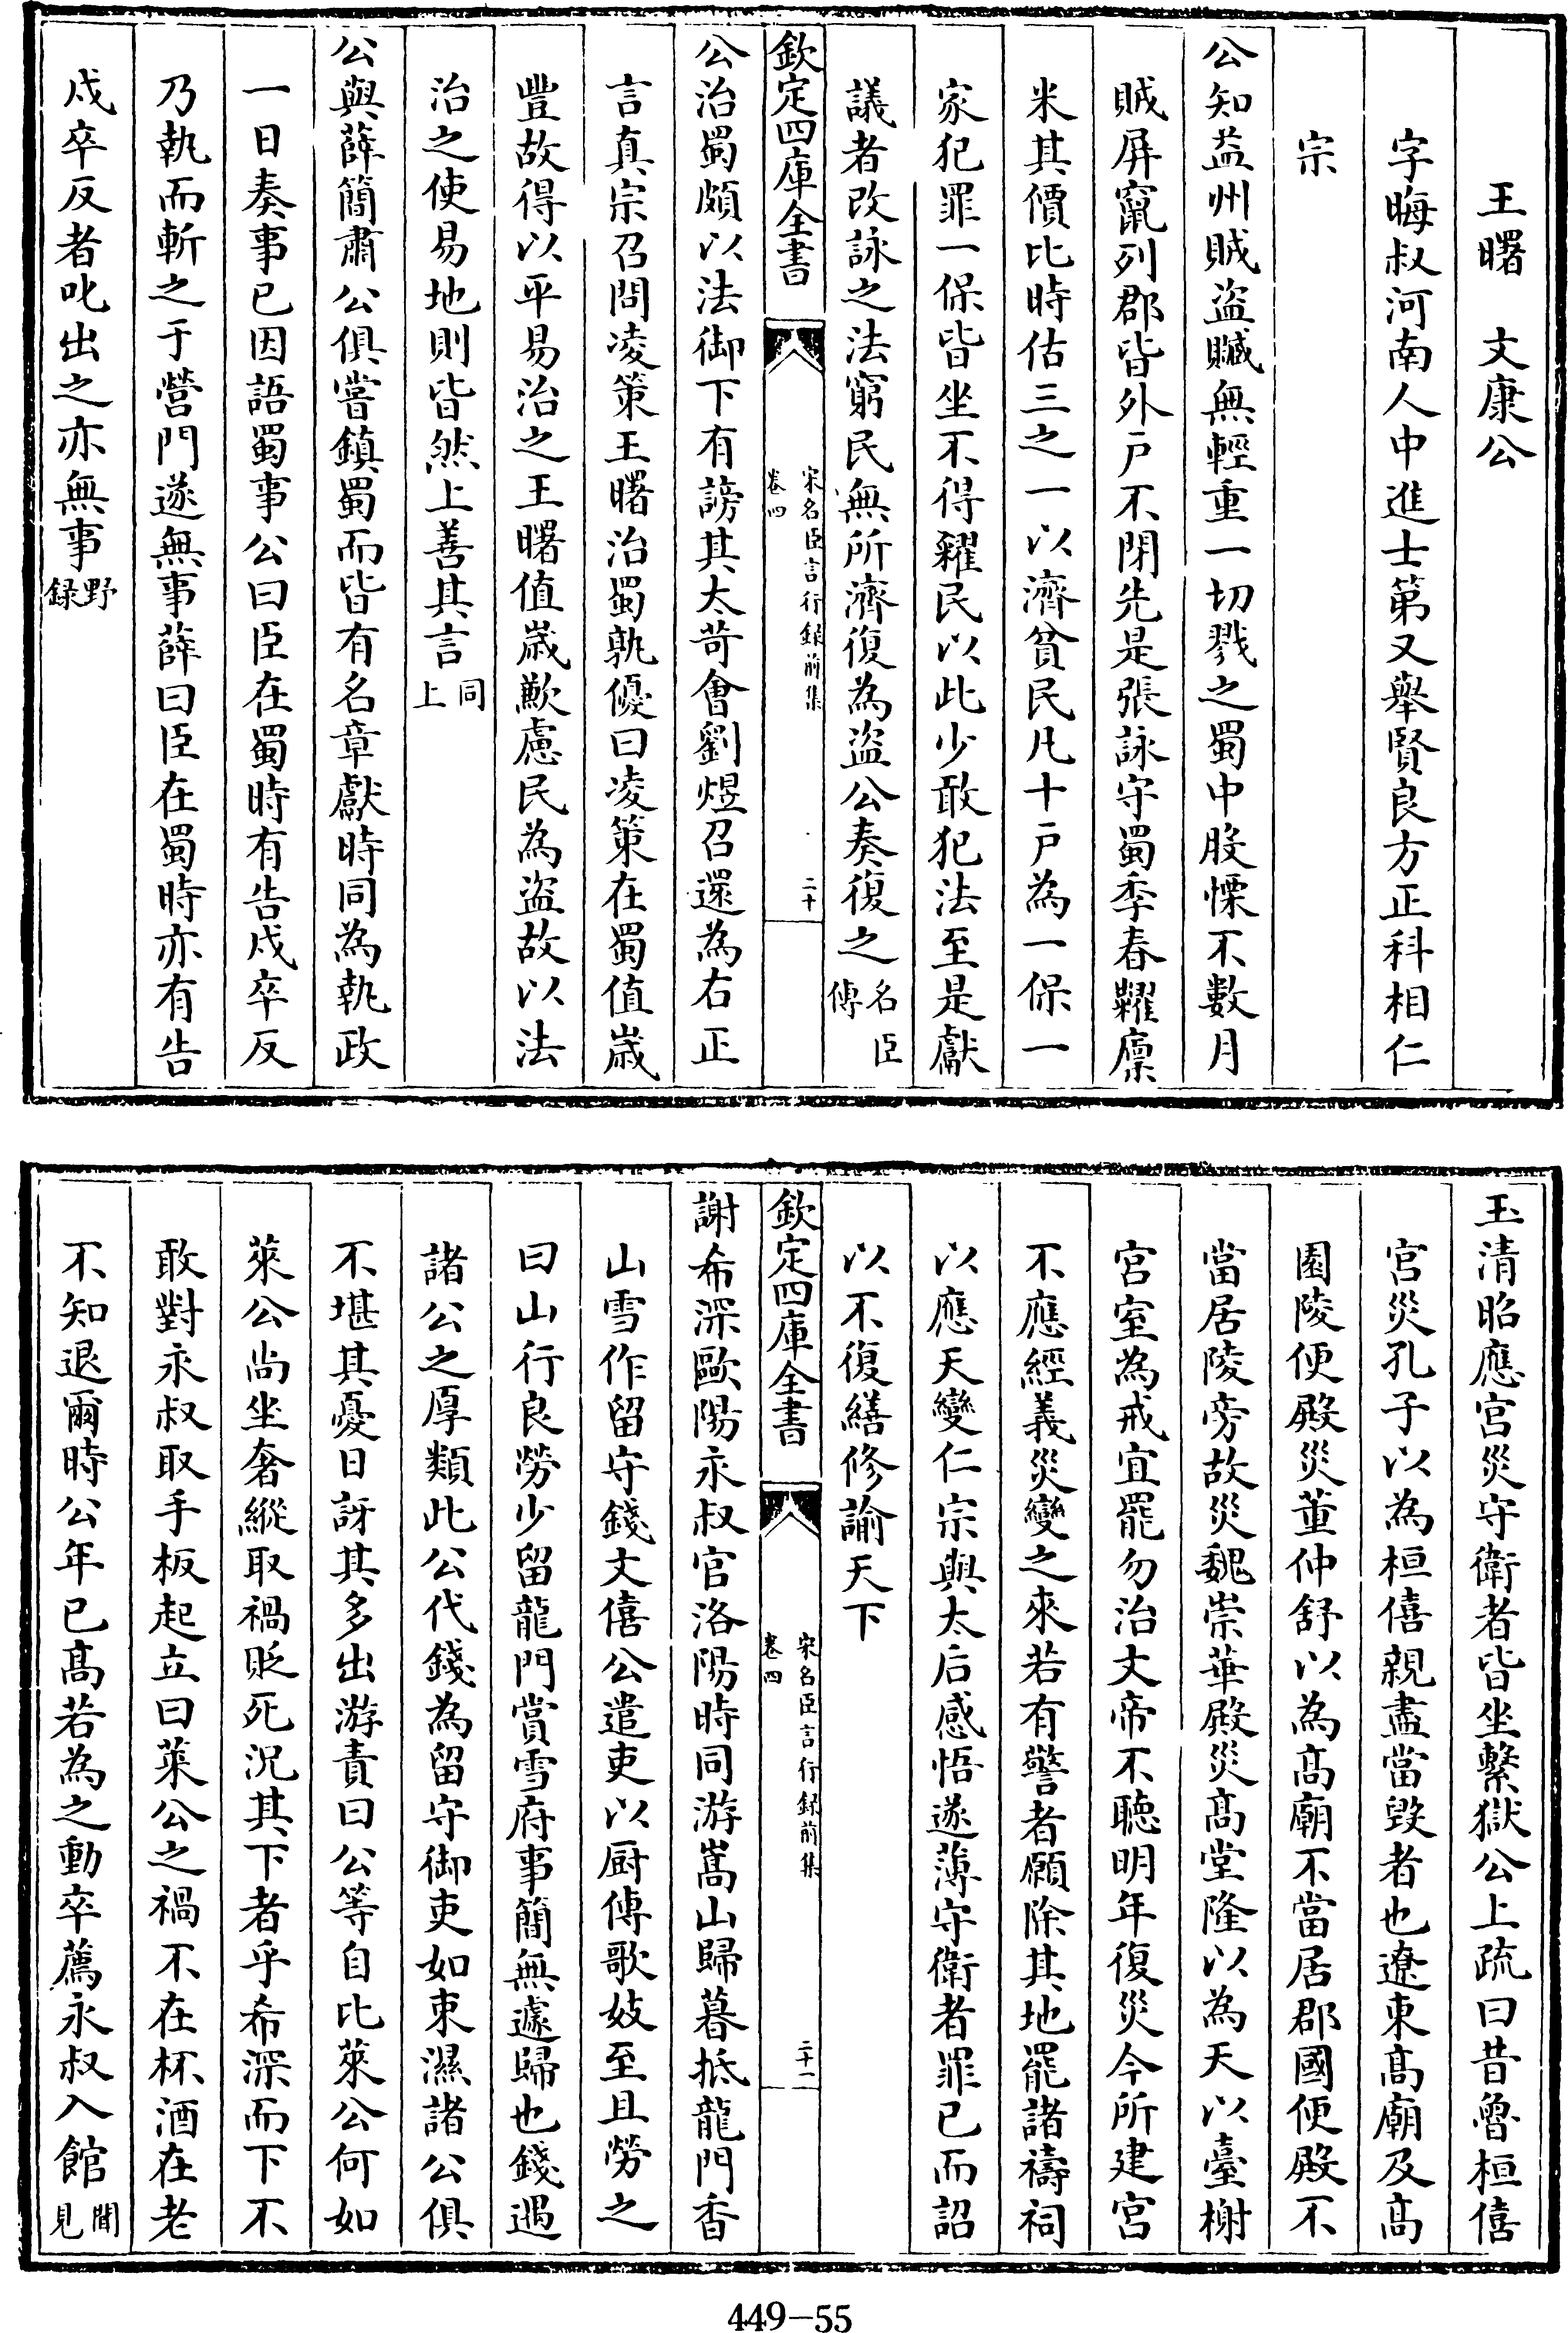 王曙　文康公
字晦叔河南人中進士第又舉賢良方正科相仁
宗
公知益州賊盜贓無輕重一切戮之蜀中股慄不數月
賊屏竄列郡皆外戶不閉先是張詠守蜀季春糶廩
米其價比時估三之一以濟貧民凡十戶為一保一
家犯罪一保皆坐不得糴民以此少敢犯法至是獻
議者改詠之法窮民無所濟復為盜公奏復之名臣傳
欽定四庫全書
宋名臣言行録前集
卷四
二十
公治蜀頗以法御下有謗其太苛會劉煜召還為右正
言真宗召問凌策王曙治蜀孰優曰凌策在蜀值歲
豐故得以平易治之王曙值歲歉慮民為盜故以法
治之使易地則皆然上善其言同上
公與薛簡肅公俱嘗鎮蜀而皆有名章獻時同為執政
一日奏事已因語蜀事公曰臣在蜀時有告戍卒反
乃執而斬之于營門遂無事薛曰臣在蜀時亦有告
戍卒反者叱出之亦無事野録
玉清昭應宮災守衛者皆坐繫獄公上疏曰昔魯桓僖
宮災孔子以為桓僖親盡當毀者也遼東高廟及高
園陵便殿災董仲舒以為高廟不當居郡國便殿不
當居陵旁故災魏崇華殿災高堂隆以為天以臺榭
宮室為戒宜罷勿治文帝不聽明年復災今所建宮
不應經義災變之來若有警者願除其地罷諸禱祠
以應天變仁宗與太后感悟遂薄守衛者罪已而詔
以不復繕修諭天下
欽定四庫全書
宋名臣言行録前集
卷四
二十一
謝希深歐陽永叔官洛陽時同游嵩山歸暮抵龍門香
山雪作留守錢文僖公遣吏以厨傳歌妓至且勞之
曰山行良勞少留龍門賞雪府事簡無遽歸也錢遇
諸公之厚類此公代錢為留守御吏如束濕諸公俱
不堪其憂日訝其多出游責曰公等自比萊公何如
萊公尚坐奢縱取禍貶死況其下者乎希深而下不
敢對永叔取手板起立曰萊公之禍不在杯酒在老
不知退爾時公年已高若為之動卒薦永叔入館聞見
449-55